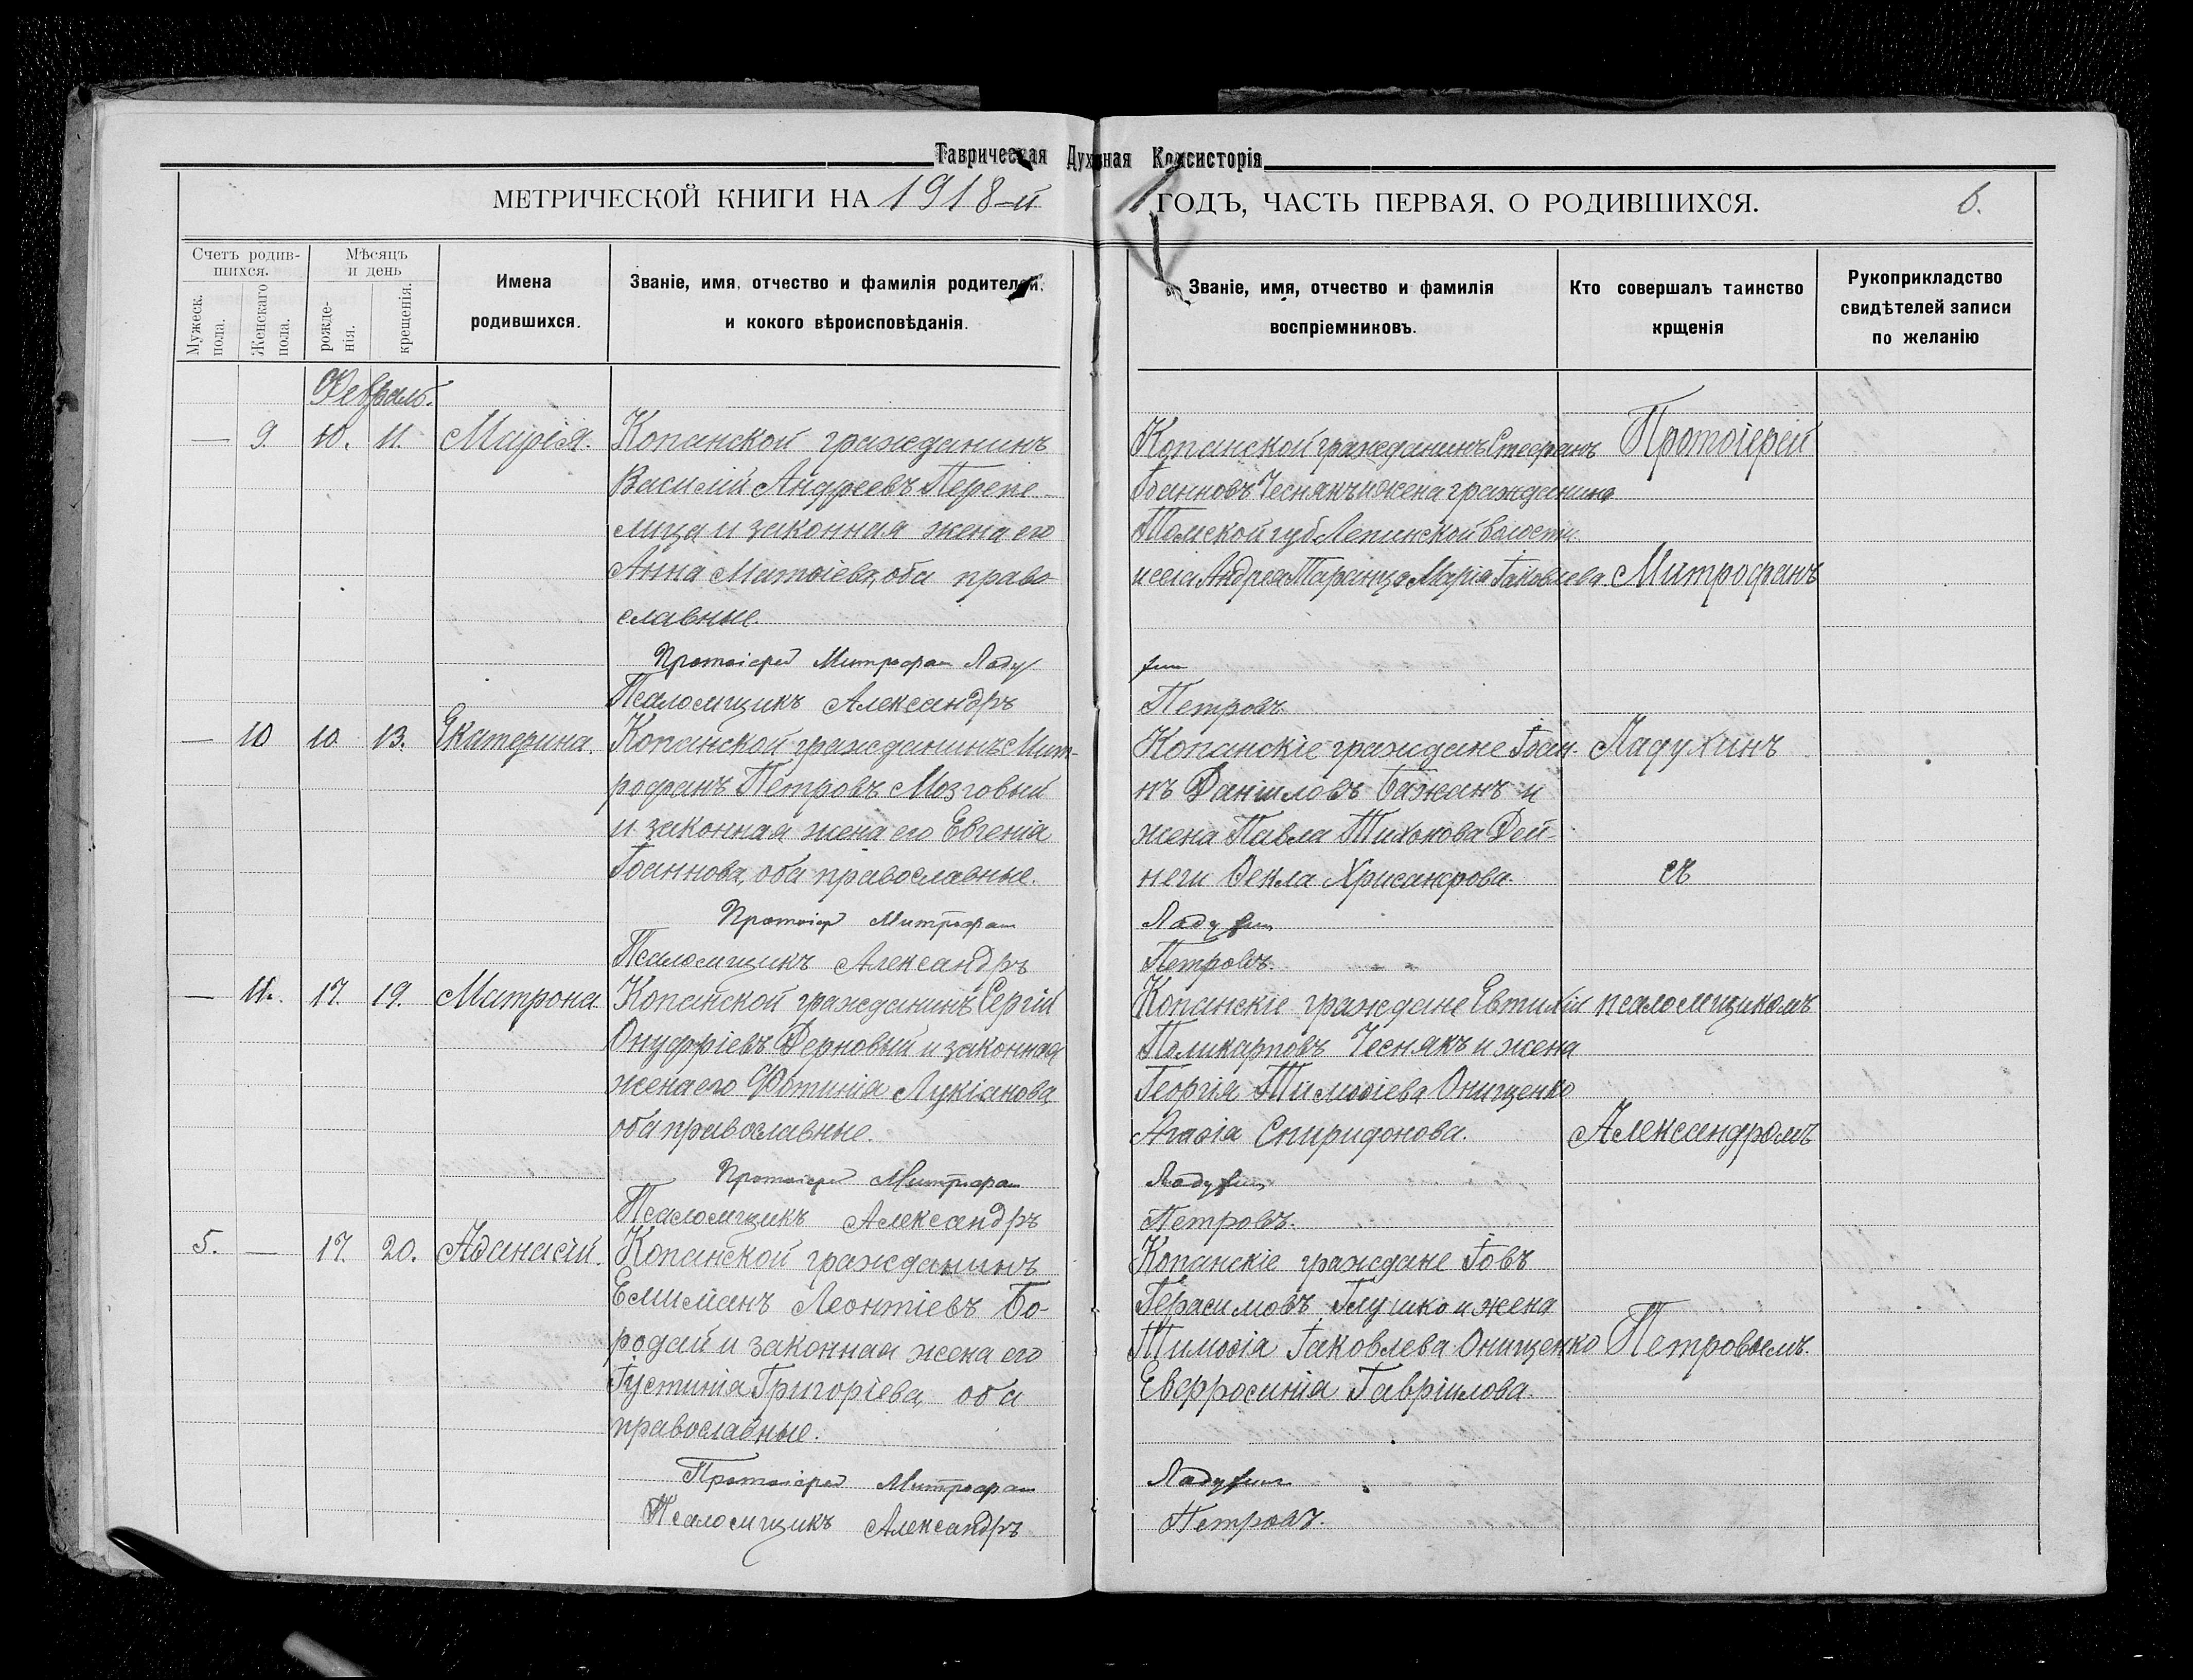 Таврическая Духовная Консисторія
МЕТРИЧЕСКОЙ КНИГИ НА 1918-й ГОДЪ, ЧАСТЬ ПЕРВАЯ, О РОДИВШИХСЯ. 6.
Счетъ родив-
шихся.
Мужеск. пола.
Женскаго пола.
Мѣсяцъ
и день
рожде-
нія.
крещенія.
Имена
родившихся.
Званіе, имя, отчество и фамилія родителей,
и кокого вѣроисповѣданія.
Званіе, имя, отчество и фамилія
воспріемниковъ.
Кто совершалъ таинство
крщенія
Рукоприкладство
свидѣтелей записи
по желанію
Февраль.
— 9. 10. 11. Марія.
Копанской гражданинъ
Василій Андреевъ Перепе-
лица и законная жена его
Анна Матѳіева, оба право-
славные.
Протоіерей Митрофан Ладу
Псаломщикъ Александръ
Копанской гражданинъ Стефанъ
Іоанновъ Чеснякъ и жена гражданина
Томской губ Лепинской волости
Андрея Таранца Марія Іаковлева.
хин
Петровъ.
— 10 10. 13. Екатерина.
Копанской гражданинъ Мит-
рофанъ Петровъ Мозговый
и законная жена его Евгенія
Іоаннова, оба православные.
Протоіер Митрофан
Псаломщикъ Александръ
Копанскіе граждане Іоан-
нъ Даніиловъ Бажанъ и
жена Павла Тихонова Дей-
неги Ѳекла Хрисанфова.
Ладухин
Петровъ.
— 11. 17. 19. Матрона
Копанской гражданинъ Сергій
Онуфріевъ Дерновый и законная
жена его Фотинія Лукіанова,
оба православные.
Протоіерей Митрофан
Псаломщикъ Александръ
Копанскіе граждане Евтихій
Поликарповъ Чеснякъ и жена
Георгія Тимоѳіева Онищенко
Агаѳія Спиридонова.
Ладухин
Петровъ.
5. — 17. 20. Аѳанасій.
Копанской гражданинъ
Емиліанъ Леонтіевъ Бо-
родай и законная жена его
Іустинія Григоріева, оба
православные.
Протоіерей Митрофан
Псаломщикъ Александръ
Копанскіе граждане Іовъ
Герасимовъ Глушко и жена
Тимоѳія Іаковлева Онищенко
Евфросинія Гавріилова.
Ладухин
Петровъ.
Протоіерей
Митрофанъ
Ладухинъ
съ
псаломщикомъ
Александромъ
Петровымъ.